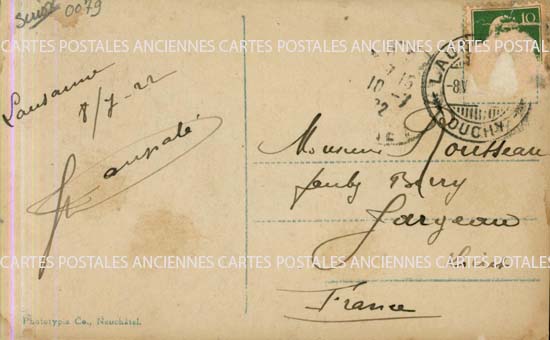 Suisse 0079
10
LAUS
-8.V
OUCHY
10 -7
22
CARTES POSTALES ANCIENNES CARTES POSTALES ANCIENNES CARTES POSTALES ANCIENNES
Lausanne
8/7-22
Monsieur Rousseau
Jargeau
Loiret
France
CARTES POSTALES ANCIENNES CARTES POSTALES ANCIENNES CARTES POSTALES ANCIENNES
Phototypie Co., Neuchâtel.